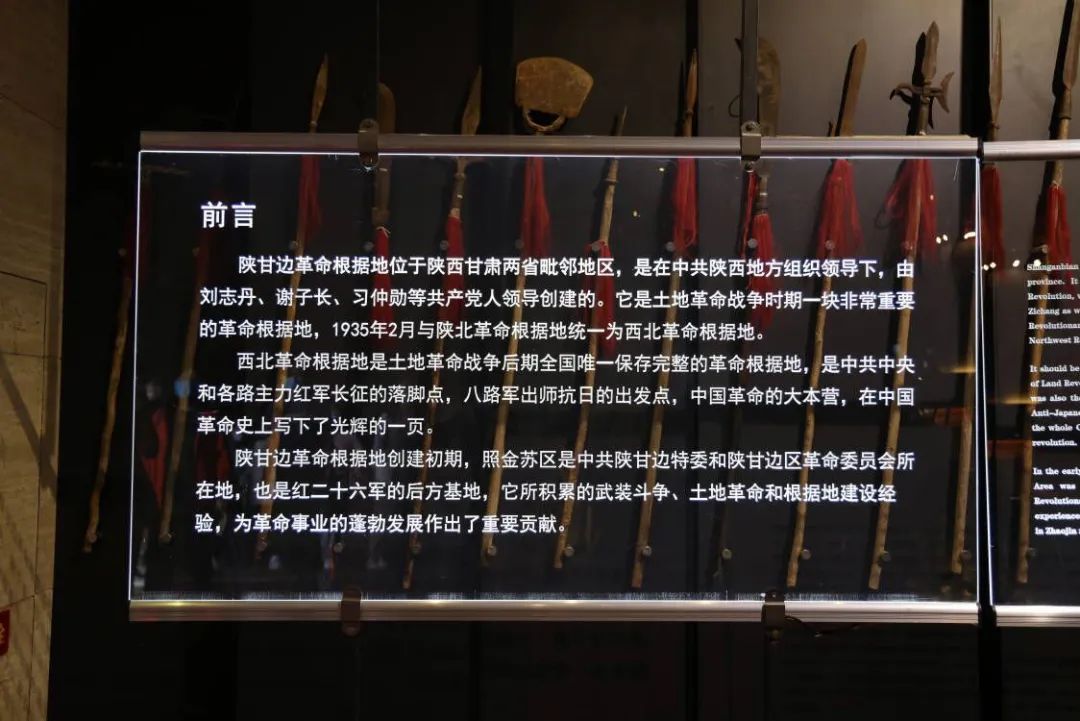 前言
陕甘边革命根据地位于陕西甘肃两省毗邻地区，是在中共陕西地方组织领导下，由
刘志丹、谢子长、习仲勋等共产党人领导创建的。它是土地革命战争时期一块非常重要
的革命根据地，1935年2月与陕北革命根据地统一为西北革命根据地。
西北革命根据地是土地革命战争后期全国唯一保存完整的革命根据地，是中共中央
和各路主力红军长征的落脚点，八路军出师抗日的出发点，中国革命的大本营，在中国
革命史上写下了光辉的一页。
陕甘边革命根据地创建初期，照金苏区是中共陕甘边特委和陕甘边区革命委员会所
在地，也是红二十六军的后方基地，它所积累的武装斗争、土地革命和根据地建设经
验，为革命事业的蓬勃发展作出了重要贡献。
Shanganbian
province. It
Revolution,
Zichang as w
Revolutionar
Northwest R
It should be
of Land Revo
was also the
Anti-Japane
the whole C
revolution.
In the early
Area was
Revolution
experience
in Zhaojin